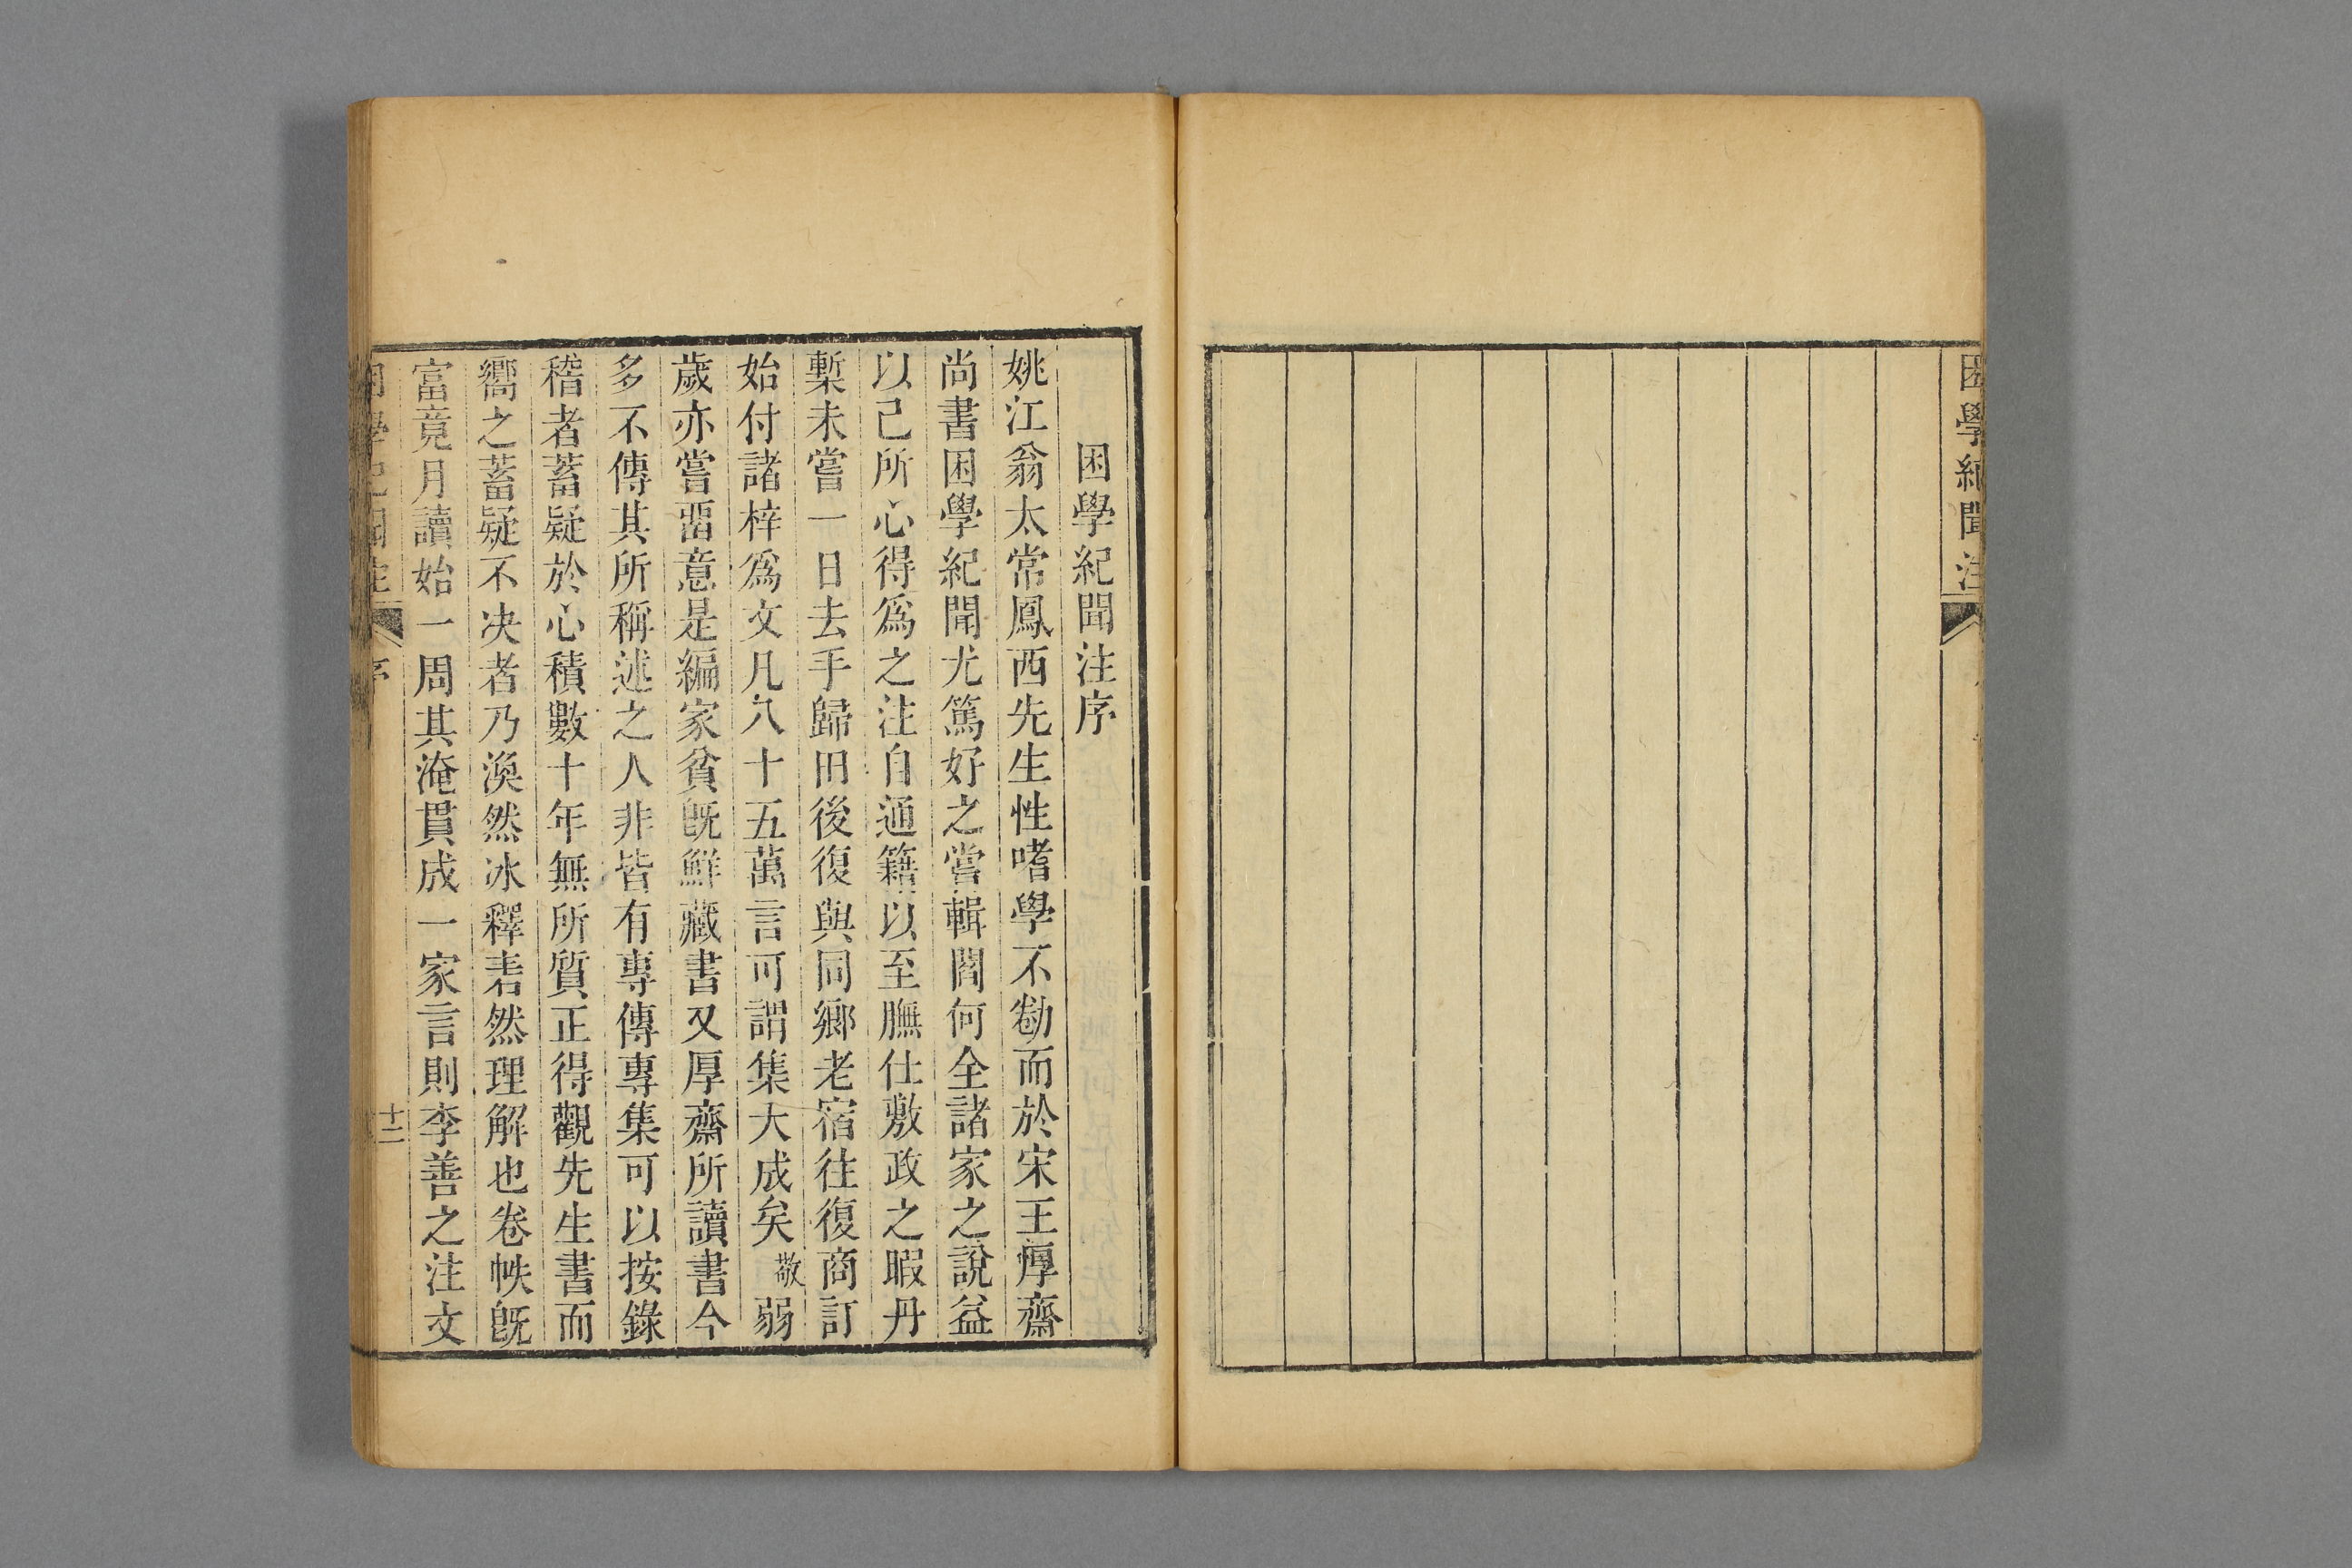 困學紀聞注
困學紀聞注序
姚江翁太常鳳西先生性嗜學不勌而於宋王厚齋
尚書困學紀聞尤篤好之嘗輯閻何全諸家之說益
以己所心得爲之注自通籍以至膴仕敷政之暇丹
槧未嘗一日去手歸田後復與同鄉老宿往復商訂
始付諸梓爲文凡八十五萬言可謂集大成矣敬弱
歲亦嘗畱意是編家貧旣鮮藏書又厚齋所讀書今
多不傳其所稱述之人非皆有專傳專集可以按錄
稽者蓄疑於心積數十年無所質正得觀先生書而
嚮之蓄疑不決者乃渙然冰釋砉然理解也卷帙旣
富竟月讀始一周其淹貫成一家言則李善之注文
困學紀聞注 序 十二